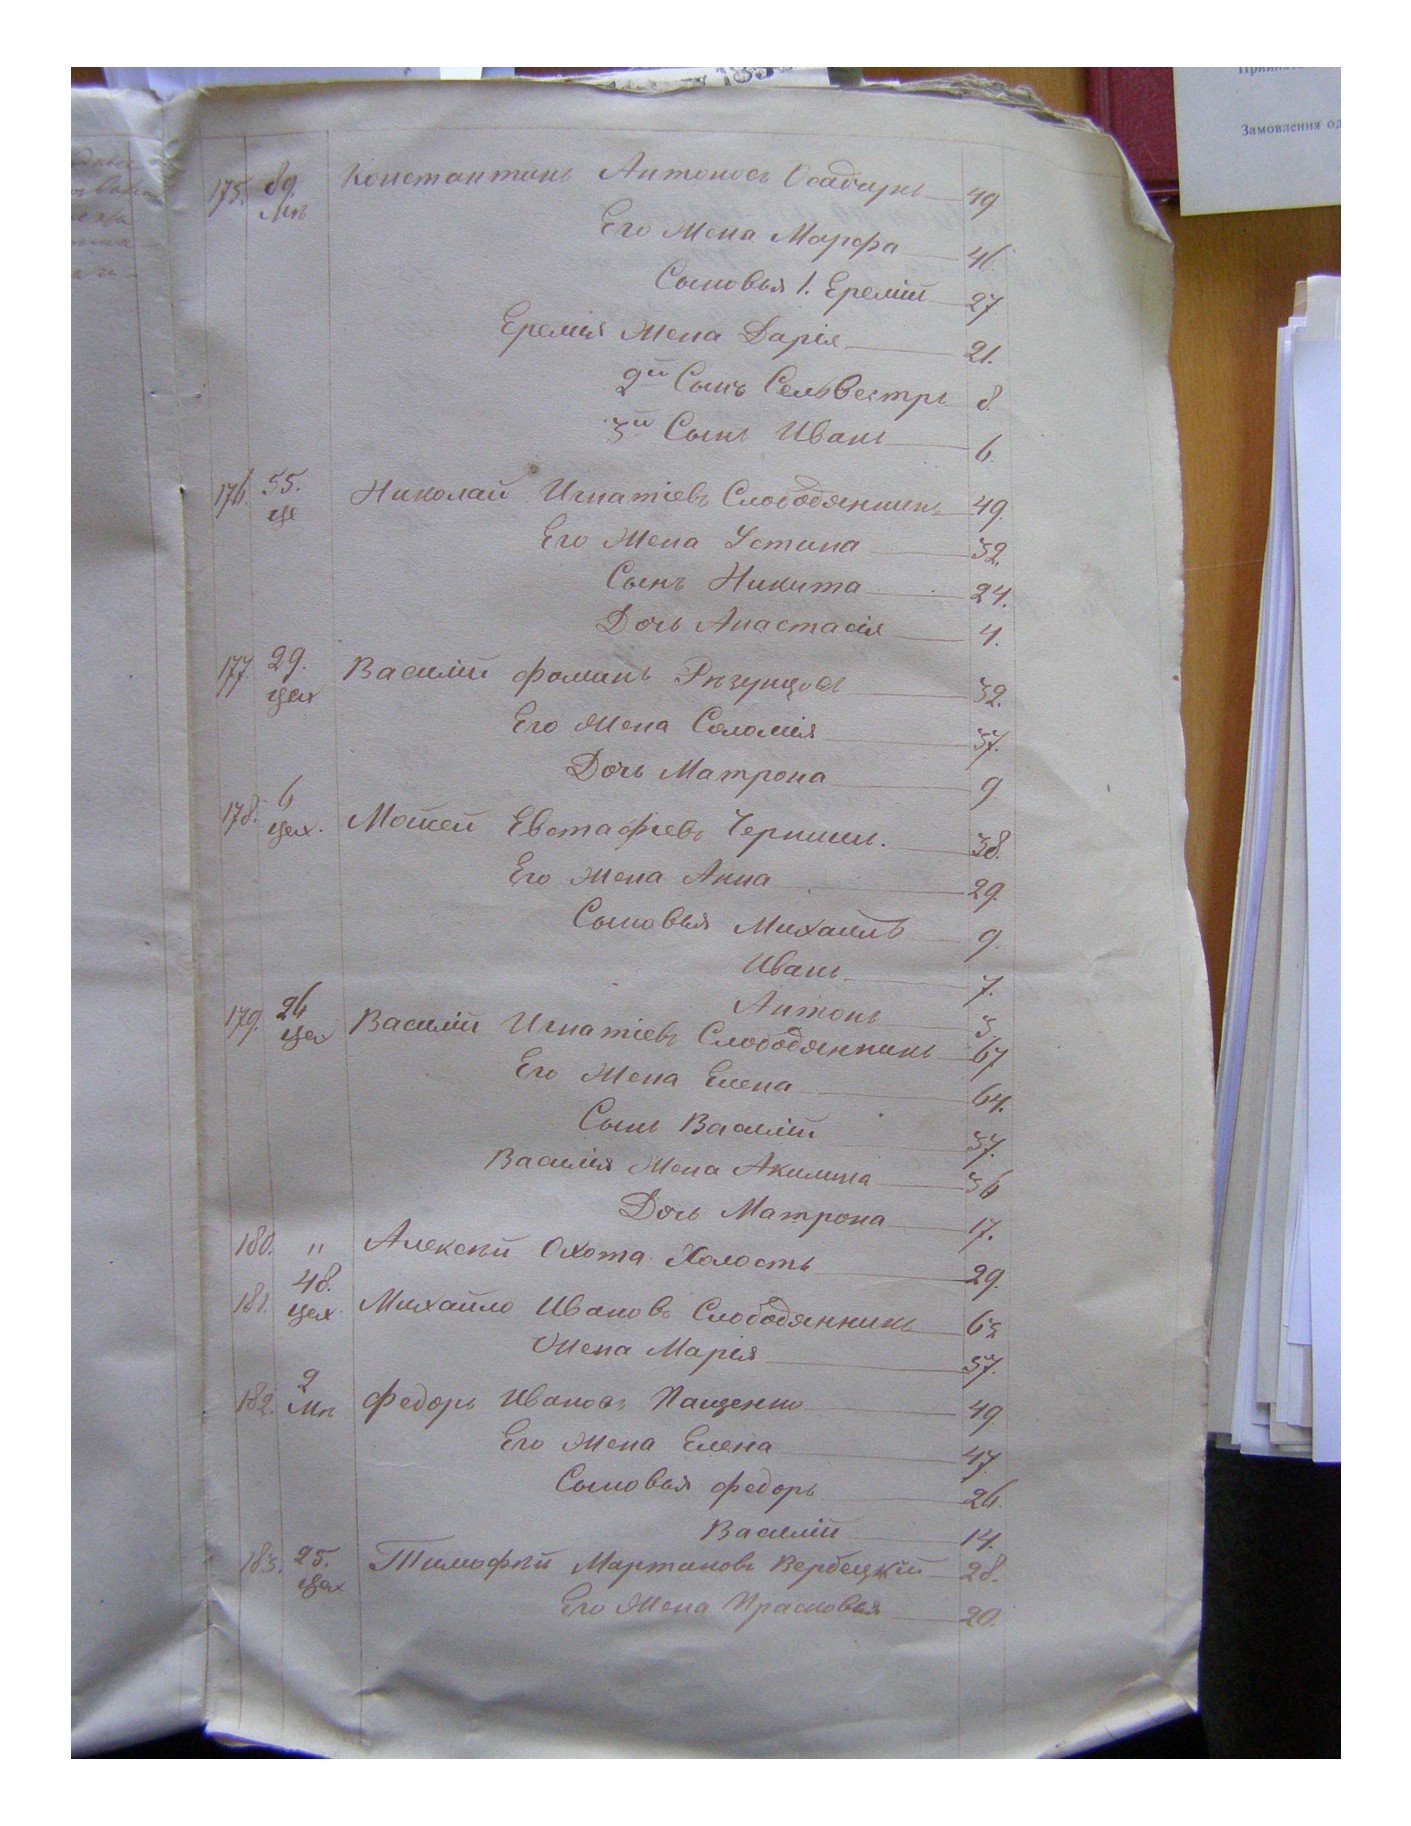 1850
Принято
Замовлення од
175. 89. Константинъ Антоновъ Осадчукъ 49
Мѣ
Его Жена Марфа 46.
Сыновья 1. Еремій 27
Еремія Жена Дарія 21.
2й Сынъ Селвестръ 8
3й Сынъ Иванъ 6.
176. 55. Николай Игнатіевъ Слободянникъ 49.
це
Его Жена Устина 32.
Сынъ Никита 24.
Дочь Анастасія 4.
177. 29. Василій Фоминъ 32.
цех
Его Жена Соломія 37.
Дочь Матрона 9
178. 6 Мойсей Евстафіевъ Чернишъ. 38.
цех.
Его Жена Анна 29.
Сыновья Михаилъ 9.
Иванъ 7.
Антонъ 3.
179. 26 Василій Игнатіевъ Слободянникъ 67
цех
Его Жена Елена 64.
Сынъ Василій 37.
Василія Жена Акилина 36
Дочь Матрона 17.
180. " Алексѣй Охота Холостъ 29.
181. 48. Михайло Ивановъ Слободянникъ 63
цех
Жена Марія 57.
182. 2 Федоръ Ивановъ Пащенко 49
Мѣ
Его Жена Елена 47.
Сыновья Федоръ 26.
Василій 14.
183. 25. Тимофѣй Мартиновъ Вербецкій 28.
цех
Его Жена Прасковья 20.